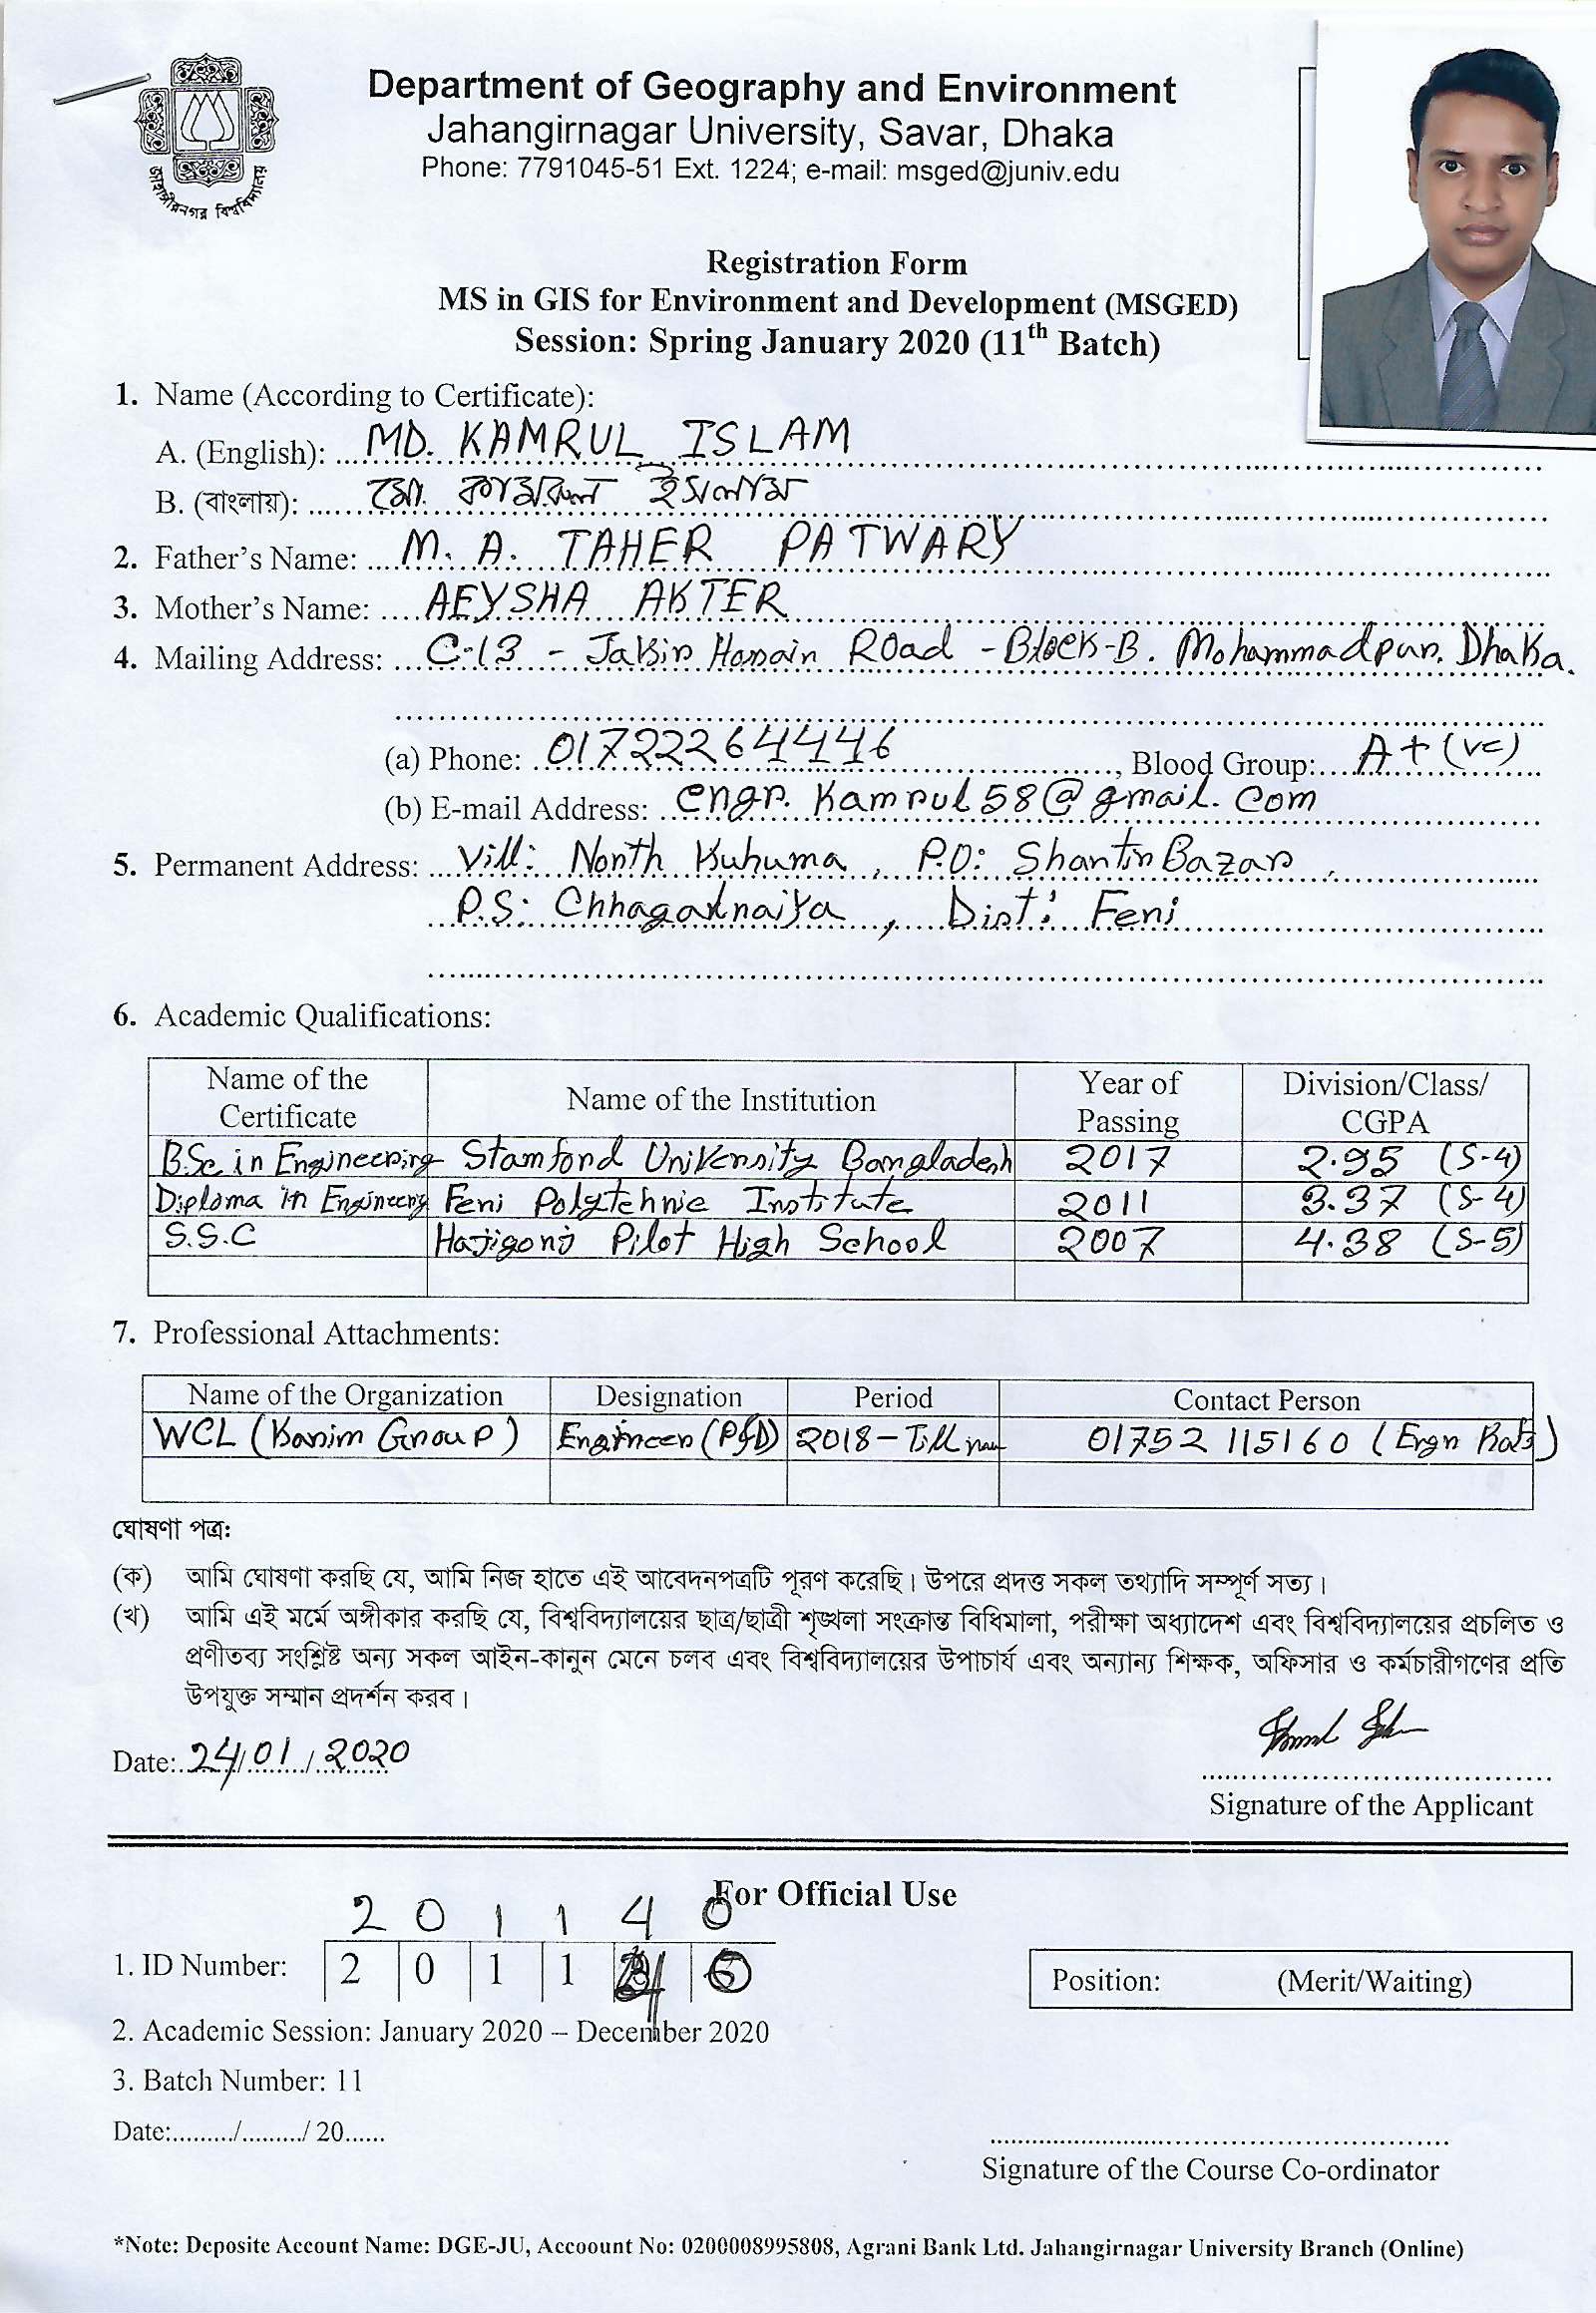 Department of Geography and Environment
Jahangirnagar University, Savar, Dhaka
Phone: 7791045-51 Ext. 1224; e-mail: msged@juniv.edu
জাহাঙ্গীরনগর বিশ্ববিদ্যালয়
Registration Form
MS in GIS for Environment and Development (MSGED)
Session: Spring January 2020 (11th Batch)
1. Name (According to Certificate):
A. (English): MD. KAMRUL ISLAM
B. (বাংলায়): মো. কামরুল ইসলাম
2. Father's Name: M. A. TAHER PATWARY
3. Mother's Name: AEYSHA AKTER
4. Mailing Address: C-13 - Jakir Hosain Road - Block-B. Mohammadpur. Dhaka.
(a) Phone: 01722264446, Blood Group: A+ (ve)
(b) E-mail Address: engr.kamrul58@gmail.com
5. Permanent Address: Vill: North Kuhuma, P.O: Shantir Bazar,
P.S: Chhagalnaiya, Dist: Feni
6. Academic Qualifications:
Name of the Certificate Name of the Institution Year of Passing Division/Class/CGPA
B.Sc in Engineering Stamford University Bangladesh 2017 2.95 (S-4)
Diploma in Engineering Feni Polytehnic Institute 2011 3.37 (S-4)
S.S.C Hajigonj Pilot High School 2007 4.38 (S-5)
7. Professional Attachments:
Name of the Organization Designation Period Contact Person
WCL (Karim Group) Engineer (P&D) 2018 - Till now 01752 115160 (Ergn
ঘোষণা পত্র:
(ক) আমি ঘোষণা করছি যে, আমি নিজ হাতে এই আবেদনপত্রটি পূরণ করেছি। উপরে প্রদত্ত সকল তথ্যাদি সম্পূর্ণ সত্য।
(খ) আমি এই মর্মে অঙ্গীকার করছি যে, বিশ্ববিদ্যালয়ের ছাত্র/ছাত্রী শৃঙ্খলা সংক্রান্ত বিধিমালা, পরীক্ষা অধ্যাদেশ এবং বিশ্ববিদ্যালয়ের প্রচলিত ও
প্রণীতব্য সংশ্লিষ্ট অন্য সকল আইন-কানুন মেনে চলব এবং বিশ্ববিদ্যালয়ের উপাচার্য এবং অন্যান্য শিক্ষক, অফিসার ও কর্মচারীগণের প্রতি
উপযুক্ত সম্মান প্রদর্শন করব।
Date: 24/01/2020
Signature of the Applicant
For Official Use
2 0 1 1 4 0
1. ID Number: 2 0 1 1
Position: (Merit/Waiting)
2. Academic Session: January 2020 – December 2020
3. Batch Number: 11
Date:........./........./ 20......
Signature of the Course Co-ordinator
*Note: Deposite Account Name: DGE-JU, Accoount No: 0200008995808, Agrani Bank Ltd. Jahangirnagar University Branch (Online)